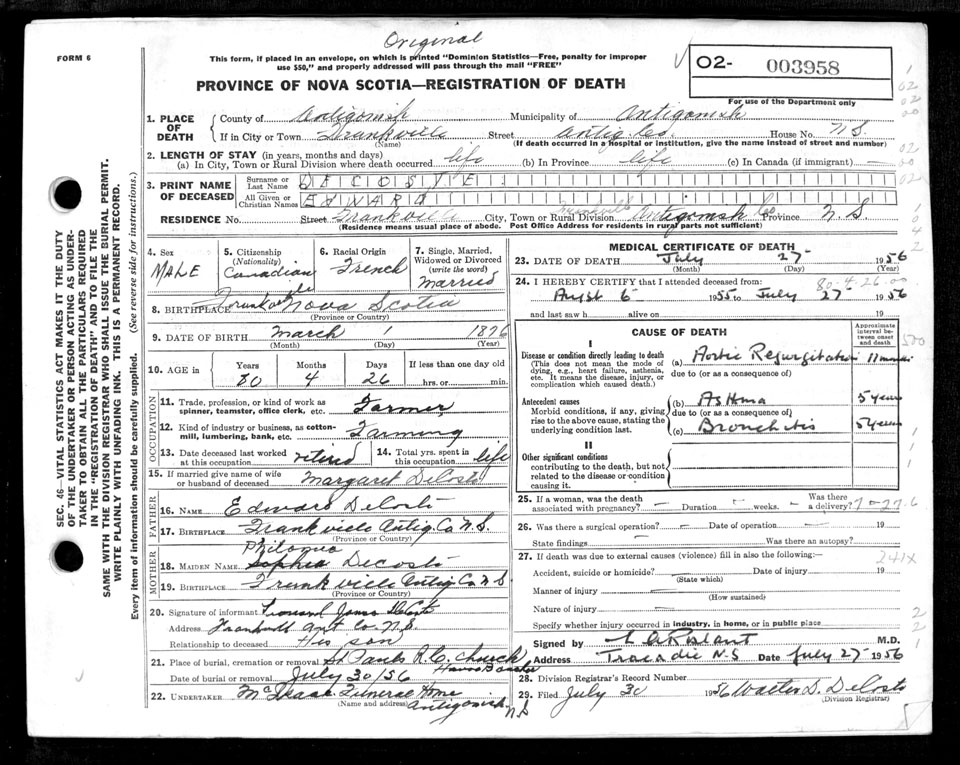 Original
FORM 6
This form, if placed in an envelope, on which is printed "Dominion Statistics—Free, penalty for improper
use $50," and properly addressed will pass through the mail "FREE"
O2- 003958
For use of the Department only
PROVINCE OF NOVA SCOTIA—REGISTRATION OF DEATH
1. PLACE OF DEATH
County of Antigonish Municipality of Antigonish
If in City or Town Frankville Street Antig. Co. House No. N.S.
(Name) (If death occurred in a hospital or institution, give the name instead of street and number)
2. LENGTH OF STAY (in years, months and days)
(a) In City, Town or Rural Division where death occurred life (b) In Province life (c) In Canada (if immigrant) —
3. PRINT NAME OF DECEASED
Surname or Last Name DECOSTE
All Given or Christian Names EDWARD
RESIDENCE No. Street Frankville City, Town or Rural Division Frankville Antigonish Co Province N S
(Residence means usual place of abode. Post Office Address for residents in rural parts not sufficient)
4. Sex MALE
5. Citizenship (Nationality) Canadian
6. Racial Origin French
7. Single, Married, Widowed or Divorced (write the word) married
8. BIRTHPLACE Frankville Nova Scotia
(Province or Country)
9. DATE OF BIRTH March 1 1876
(Month) (Day) (Year)
10. AGE in Years 80 Months 4 Days 26 If less than one day old hrs. or min.
OCCUPATION
11. Trade, profession, or kind of work as spinner, teamster, office clerk, etc. Farmer
12. Kind of industry or business, as cotton-mill, lumbering, bank, etc. Farming
13. Date deceased last worked at this occupation retired
14. Total yrs. spent in this occupation life
15. If married give name of wife or husband of deceased Margaret DeCoste
FATHER
16. NAME Edward DeCoste
17. BIRTHPLACE Frankville Antig. Co N.S.
(Province or Country)
MOTHER
Philomia
18. MAIDEN NAME Sophia DeCoste
19. BIRTHPLACE Frankville Antig Co N S
(Province or Country)
20. Signature of informant James DeCoste
Address Frankville Ant Co. N.S.
Relationship to deceased His son
21. Place of burial, cremation or removal St Pauls R.C. Church
Havre Boucher
Date of burial or removal July 30/56
22. UNDERTAKER McIsaac Funeral Home
(Name and address) Antigonish N S
MEDICAL CERTIFICATE OF DEATH
23. DATE OF DEATH July 27 1956
(Month) (Day) (Year)
24. I HEREBY CERTIFY that I attended deceased from: 80-4-26-00
August 6 1955 to July 27 1956
and last saw h alive on 19
CAUSE OF DEATH
Approximate interval between onset and death
I
Disease or condition directly leading to death
(This does not mean the mode of dying, e.g., heart failure, asthenia, etc. It means the disease, injury, or complication which caused death.)
(a) Aortic Regurgitation 11 months
due to (or as a consequence of)
Antecedent causes
Morbid conditions, if any, giving rise to the above cause, stating the underlying condition last.
(b) Asthma 5 years
due to (or as a consequence of)
(c) Bronchitis 5 years
II
Other significant conditions
contributing to the death, but not related to the disease or condition causing it.
25. If a woman, was the death associated with pregnancy? — Duration — weeks. Was there a delivery?
26. Was there a surgical operation? — Date of operation — 19
State findings Was there an autopsy?
27. If death was due to external causes (violence) fill in also the following: 241X
Accident, suicide or homicide? Date of injury 19
(State which)
Manner of injury
(How sustained)
Nature of injury
Specify whether injury occurred in industry, in home, or in public place
Signed by M.D.
Address Tracadie N.S Date July 27 1956
28. Division Registrar's Record Number
29. Filed July 30 1956 Walter D. DeCoste
(Division Registrar)
SEC. 46—VITAL STATISTICS ACT MAKES IT THE DUTY
OF THE UNDERTAKER OR PERSON ACTING AS UNDER-
TAKER TO OBTAIN ALL THE PARTICULARS REQUIRED
IN THE "REGISTRATION OF DEATH" AND TO FILE THE
SAME WITH THE DIVISION REGISTRAR WHO SHALL ISSUE THE BURIAL PERMIT.
WRITE PLAINLY WITH UNFADING INK. THIS IS A PERMANENT RECORD.
Every item of information should be carefully supplied. (See reverse side for instructions.)